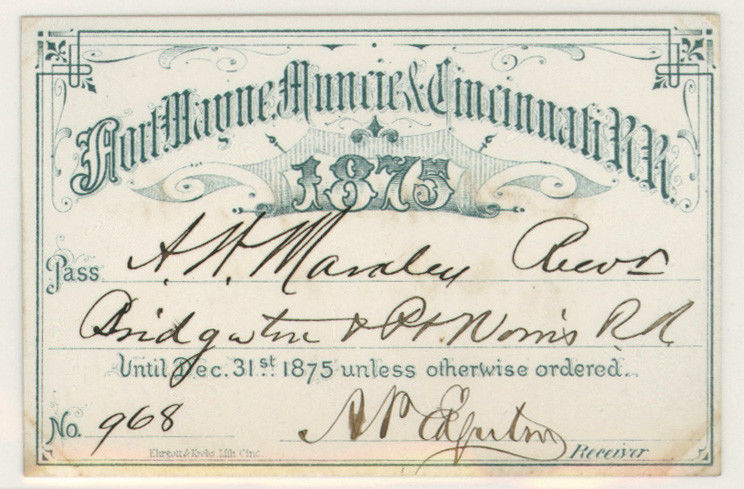 Fort Wayne, Muncie & Cincinnati R.R.
1875
Pass A. H. Markley Recvr
Bridgeton & Pt. Norris R.R.
Until Dec. 31st 1875 unless otherwise ordered.
No. 968 A P Edgerton Receiver
Ehrgott & Krebs Lith. Cinc.